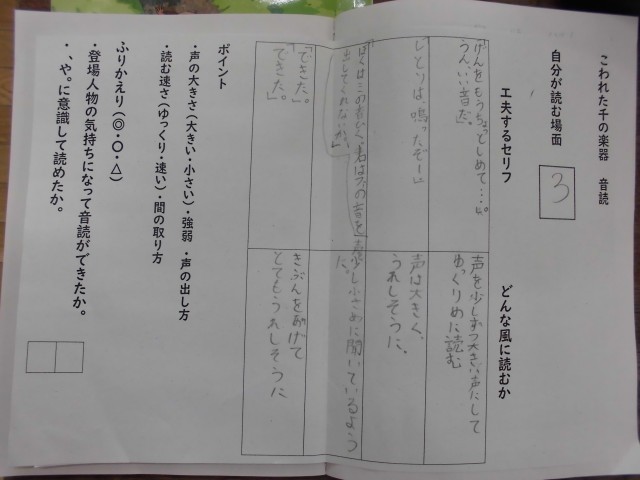 こわれた千の楽器　音読
自分が読む場面
3
工夫するセリフ
どんな風に読むか
げんをもうちょっとしめて…。
うん、いい音だ。
声を少しずつ大きい声にして
ゆっくりめに読む
鳴ったぞー」
声は大きく、
うれしそうに、
ぼくはミの音を、君はファの音を
出してくれないか。」
声少し小さめに聞いているよう
に。
「できた。」
「できた。」
きぶんをあげて
とてもうれしそうに
ポイント
・声の大きさ(大きい・小さい)・強弱　・声の出し方
・読む速さ(ゆっくり・速い)・間の取り方
ふりかえり(◎・〇・△)
・登場人物の気持ちになって音読ができたか。
・、や。に意識して読めたか。